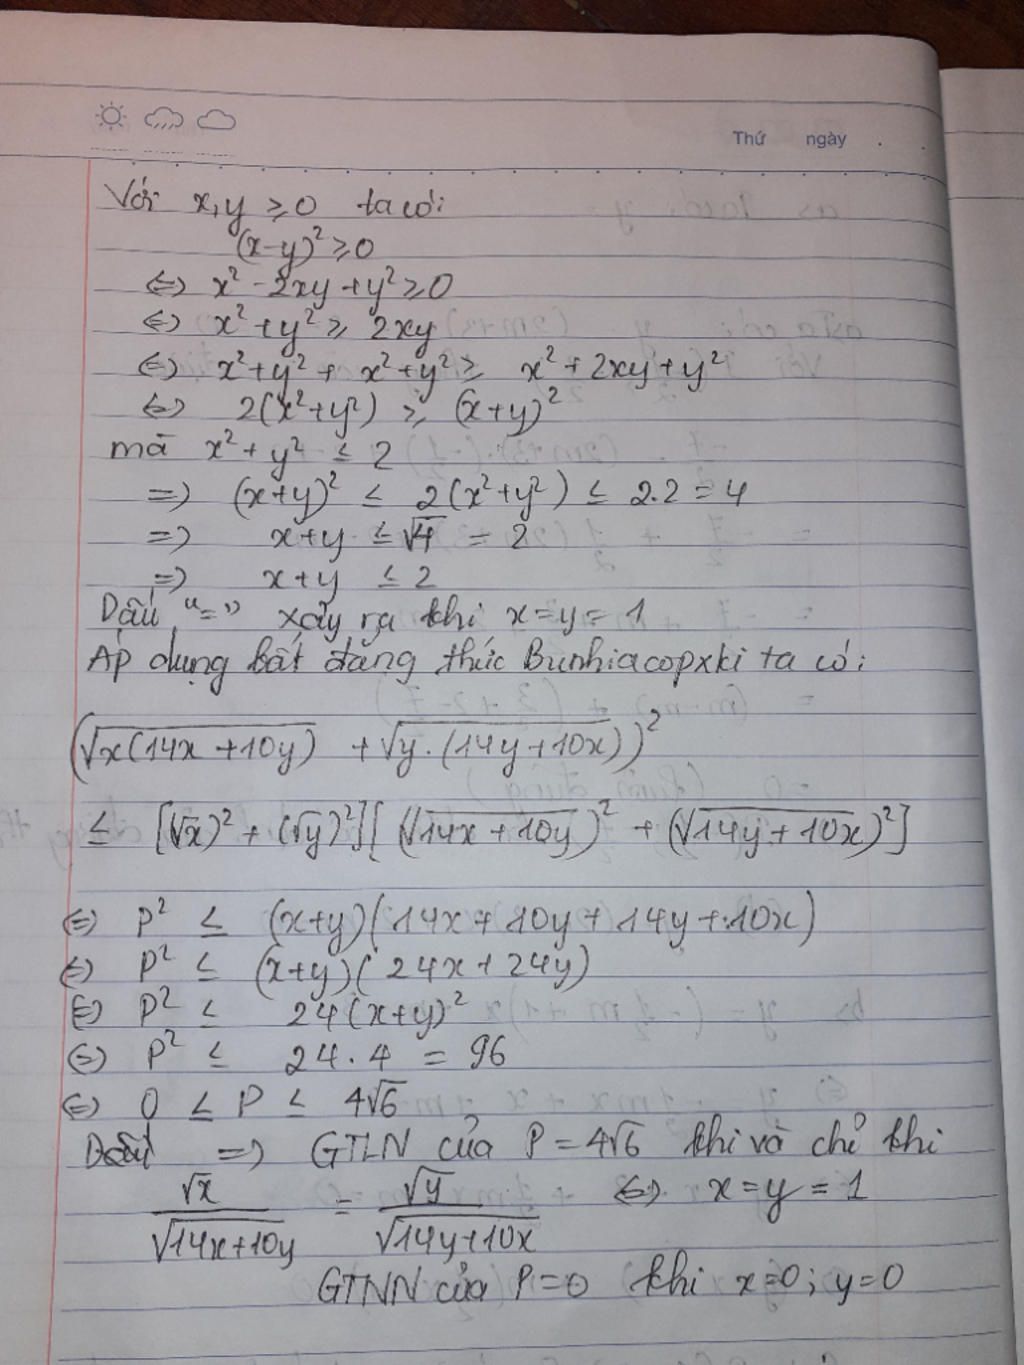 Thứ ngày
Với x,y ≥ 0 ta có:
(x-y)² ≥ 0
⇔ x² - 2xy + y² ≥ 0
⇔ x² + y² ≥ 2xy
⇔ x² + y² + x² + y² ≥ x² + 2xy + y²
⇔ 2(x² + y²) ≥ (x+y)²
mà x² + y² ≤ 2
=> (x+y)² ≤ 2(x² + y²) ≤ 2.2 = 4
=> x + y ≤ √4 = 2
=> x + y ≤ 2
Dấu "=" xảy ra khi x = y = 1
Áp dụng bất đẳng thức Bunhiacopxki ta có:
(√x(14x + 10y) + √y.(14y + 10x))²
≤ [(√x)² + (√y)²][(√14x + 10y)² + (√14y + 10x)²]
⇔ P² ≤ (x+y)(14x + 10y + 14y + 10x)
⇔ P² ≤ (x+y)(24x + 24y)
⇔ P² ≤ 24(x+y)²
⇔ P² ≤ 24.4 = 96
⇔ 0 ≤ P ≤ 4√6
=> GTLN của P = 4√6 khi và chỉ khi
√x/√14x+10y = √y/√14y+10x ⇔ x = y = 1
GTNN của P = 0 khi x=0; y=0